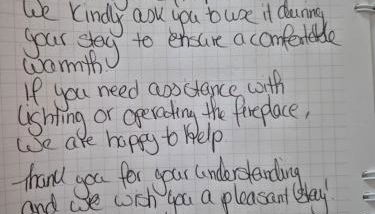 We kindly ask you to use it during
your stay to ensure a comfortable
warmth.
If you need assistance with
lighting or operating the fireplace,
we are happy to help
Thank you for your understanding
and we wish you a pleasant stay!